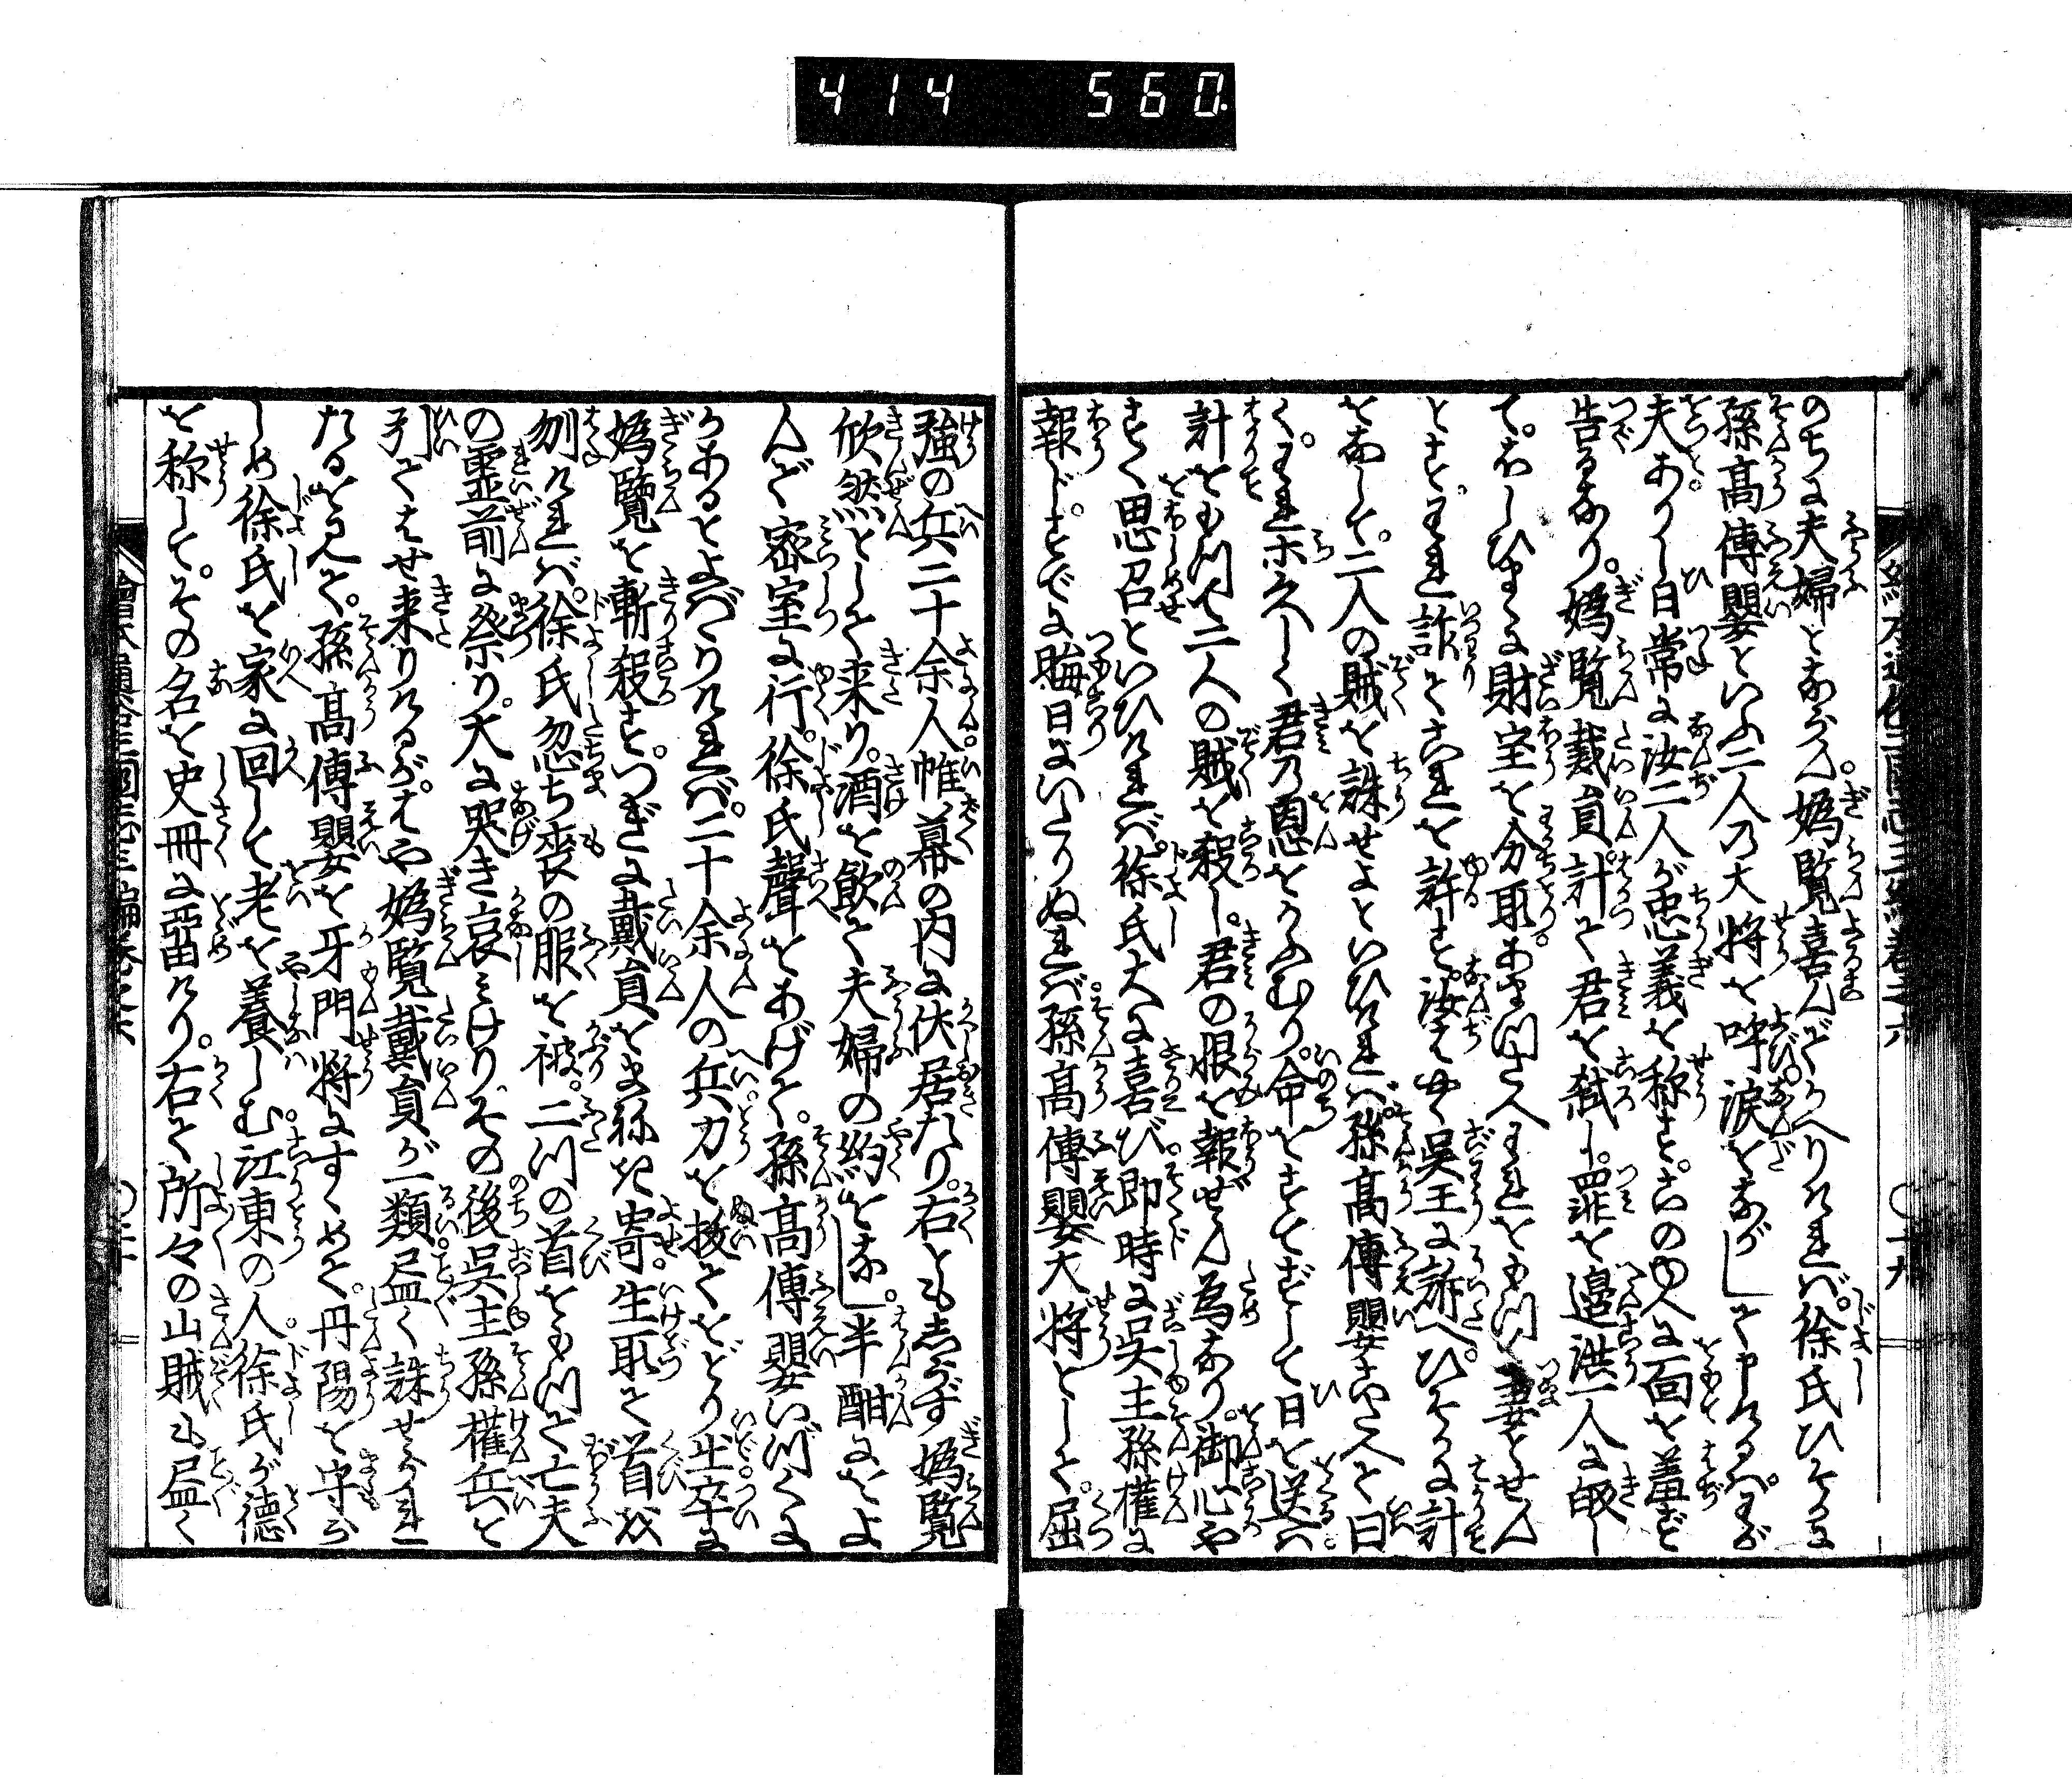 414 560
のちに夫婦とならん。媯覧喜んでかへりければ。徐氏ひそかに
孫高傅嬰といふ二人の大将を呼。涙をながして申けるは。わが
夫ありし日常に汝二人が忠義を称す。この ゆへに面を羞ぢ
告るなり。媯覧戴員計て君を弑し。罪を邉洪一人に皈し
て。おしひまゝに財宝を分取。あまつさへわれをもつて妻とせん
とす。われ詐てこれを許す。汝はやく呉王に訴へ。ひそかに計
をなして。二人の賊を誅せよといひければ。孫高傅嬰こたへて曰
く。われホ久しく君の恩をかふむり。命をすてずして日を送は。
計をもつて二人の賊を殺し。君の恨を報ぜん為なり。御心や
すく思召といひければ。徐氏大に喜び。即時に呉主孫権に
報じ。すでに晦日にいたりぬれば。孫高傅嬰大将として。屈
強の兵二十余人。帷幕の内に伏居たり。右ともしらず媯覧
欣然として来り。酒を飲て夫婦の約をなし。半酣におよ
んで密室に行。徐氏聲をあげて。孫高傅嬰いづくに
かあるとよばゝりければ。二十余人の兵。刀を抜てをどり出。卒に
媯覧を斬殺す。つぎに戴員をまねき寄。生取て首を
刎ければ。徐氏忽ち喪の服を被。二川の首をもつて亡夫
の霊前に祭り。大に哭き哀みけり。その後呉主孫権兵を
引てはせ来りけるが。はや媯覧戴員が一類。尽く誅せられ
たるを見て。孫高傅嬰を牙門将にすゝめて。丹陽を守ら
しめ徐氏を家に回して老を養しむ。江東の人。徐氏が徳
を称して。その名を史冊に畄けり。右て所々の山賊も尽く